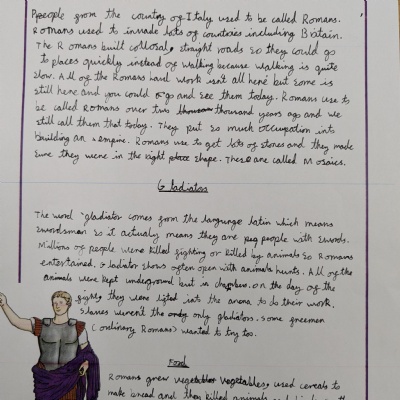 People from the country of Italy used to be called Romans.
Romans used to invade lots of countries including Britain.
The Romans built collosal, straight roads so they could go
to places quickly instead of walking because walking is quite
slow. All of the Romans hard work isn't all here but some is
still here and you could go and see them today. Romans use to
be called Romans over two thousand years ago and we
still call them that today. They put so much occupation into
building an empire. Romans use to get lots of stones and they made
sure they were in the right place shape. These are called Mosaics.
Gladiators
The word 'gladiator comes form the langunge latin which means
swordsman so it actually means they are people with swords.
Millions of people were killed fighting or killed by animals so Romans
entertained. Gladiator shows often open with animals hunts. All of the
animals were kept underground but in chambers. On the day of the
fight, they were lifted into the arena to do their work.
slaves weren't the only gladiators. some freemen
(ordinary Romans) wanted to try too.
Food
Romans grew vegetables, used cereals to
make bread and they killed animals